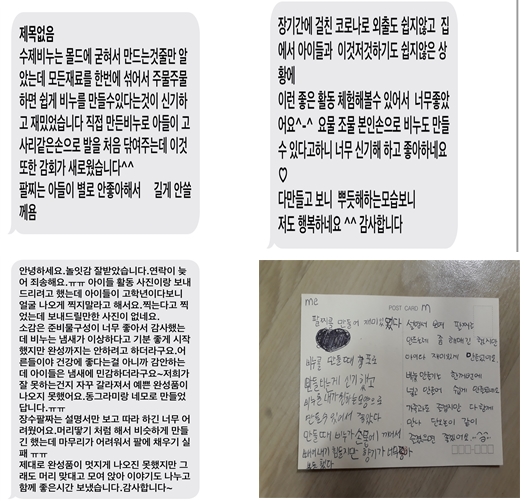 제목없음
수제비누는 몰드에 굳혀서 만드는것줄만 알
았는데 모든재료를 한번에 섞어서 주물주물
하면 쉽게 비누를 만들수있다는것이 신기하
고 재밌었습니다 직접 만든비누로 아들이 고
사리같은손으로 발을 처음 닦여주는데 이것
또한 감회가 새로웠습니다^^
팔찌는 아들이 별로 안좋아해서 길게 안쓸
께욤
장기간에 걸친 코로나로 외출도 쉽지않고 집
에서 아이들과 이것저것하기도 쉽지않은 상
황에
이런 좋은 활동 체험해볼수 있어서 너무좋았
어요^-^ 요물 조물 본인손으로 비누도 만들
수 있다고하니 너무 신기해 하고 좋아하네요
♡
다만들고 보니 뿌듯해하는모습보니
저도 행복하네요 ^^ 감사합니다
안녕하세요.놀잇감 잘받았습니다.연락이 늦
어 죄송해요.ㅠㅠ 아이들 활동 사진이랑 보내
드리려고 했는데 아이들이 고학년이다보니
얼굴 나오게 찍지말라고 해서요.찍는다고 찍
었는데 보내드릴만한 사진이 없네요.
소감은 준비물구성이 너무 좋아서 감사했는
데 비누는 냄새가 이상하다고 기분 좋게 시작
했지만 완성까지는 안하려고 하더라구요.어
른들이야 건강에 좋다는걸 아니까 감안하는
데 아이들은 냄새에 민감하더라구요~저희가
잘 못하는건지 자꾸 갈라져서 예쁜 완성품이
나오지 못했어요.동그라미랑 네모로 만들었
답니다.ㅠㅠ
장수팔찌는 설명서만 보고 따라 하긴 너무 어
려웠어요.머리땋기 처럼 해서 비슷하게 만들
긴 했는데 마무리가 어려워서 팔에 채우기 실
패 ㅠㅠ
제대로 완성품이 멋지게 나오진 못했지만 그
래도 머리 맞대고 모여 앉아 이야기도 나누고
함께 좋은시간 보냈습니다.감사합니다~
me
POST CARD
팔찌를 만들어 재미있었다
비누를 만들때
만들 신기했고
만들수 있어서 좋았다
만들때 비누가 손에 껴서
빼내기 힘들지만 향기가
설명서 보며 팔찌